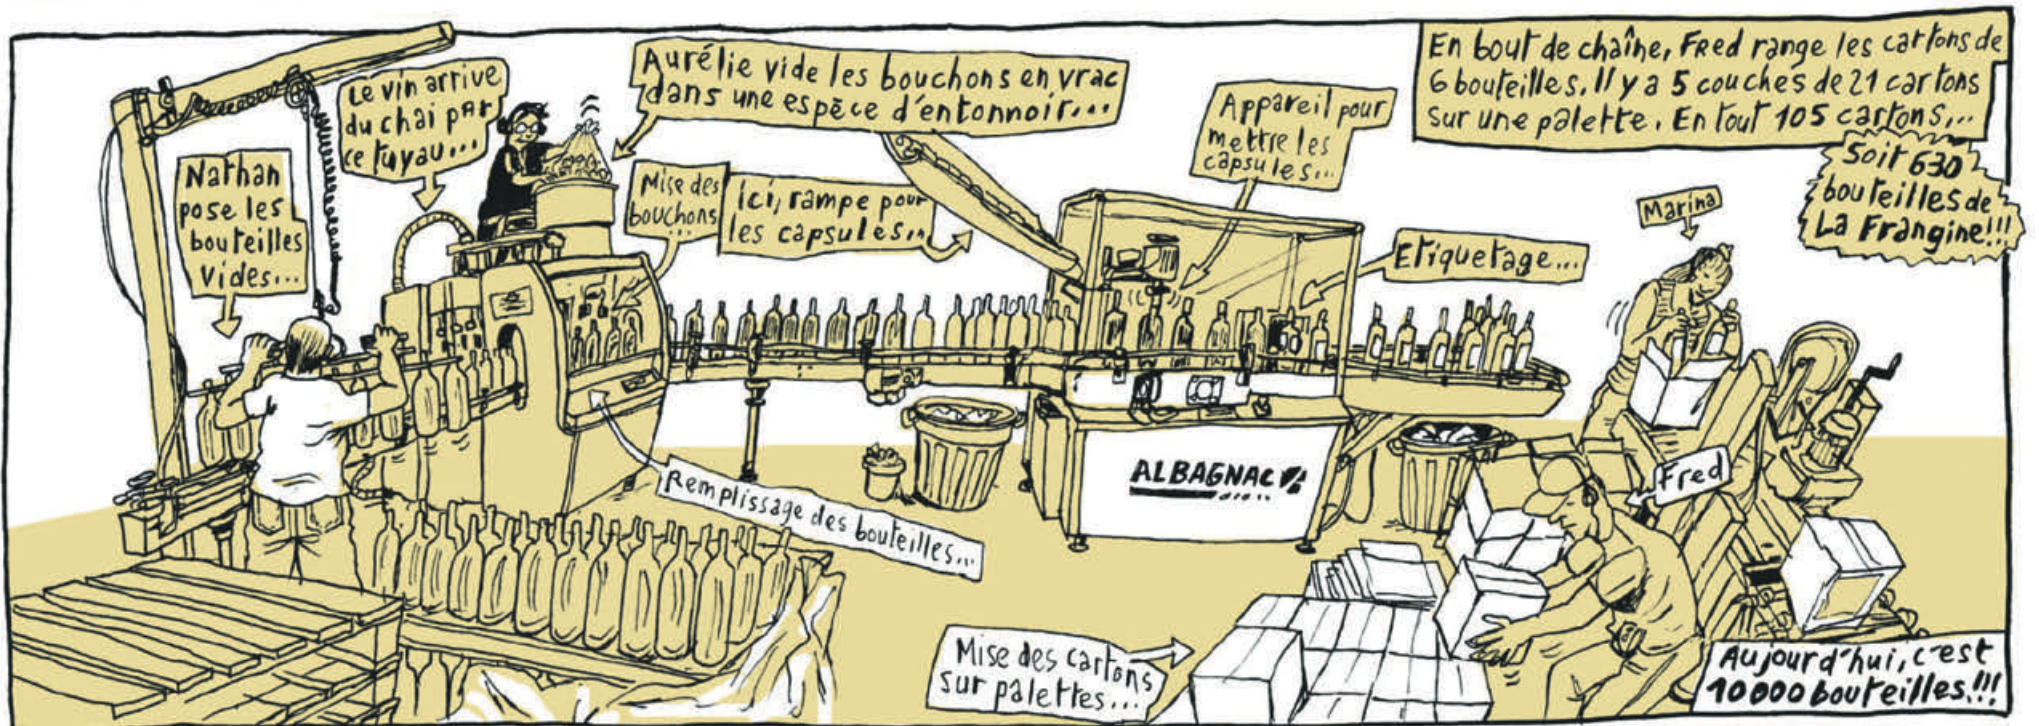 Nathan
pose les
bouteilles
vides...
Le vin arrive
du chai par
ce tuyau...
Aurélie vide les bouchons en vrac
dans une espèce d'entonnoir...
Mise des
bouchons
...
Ici, rampe pour
les capsules...
Appareil pour
mettre les
capsules...
Etiquetage...
En bout de chaîne, Fred range les cartons de
6 bouteilles. Il y a 5 couches de 21 cartons
sur une palette. En tout 105 cartons...
Soit 630
bouteilles de
La Frangine!!!
Marina
Fred
ALBAGNAC
Remplissage des bouteilles...
Mise des cartons
sur palettes...
Aujourd'hui, c'est
10000 bouteilles!!!